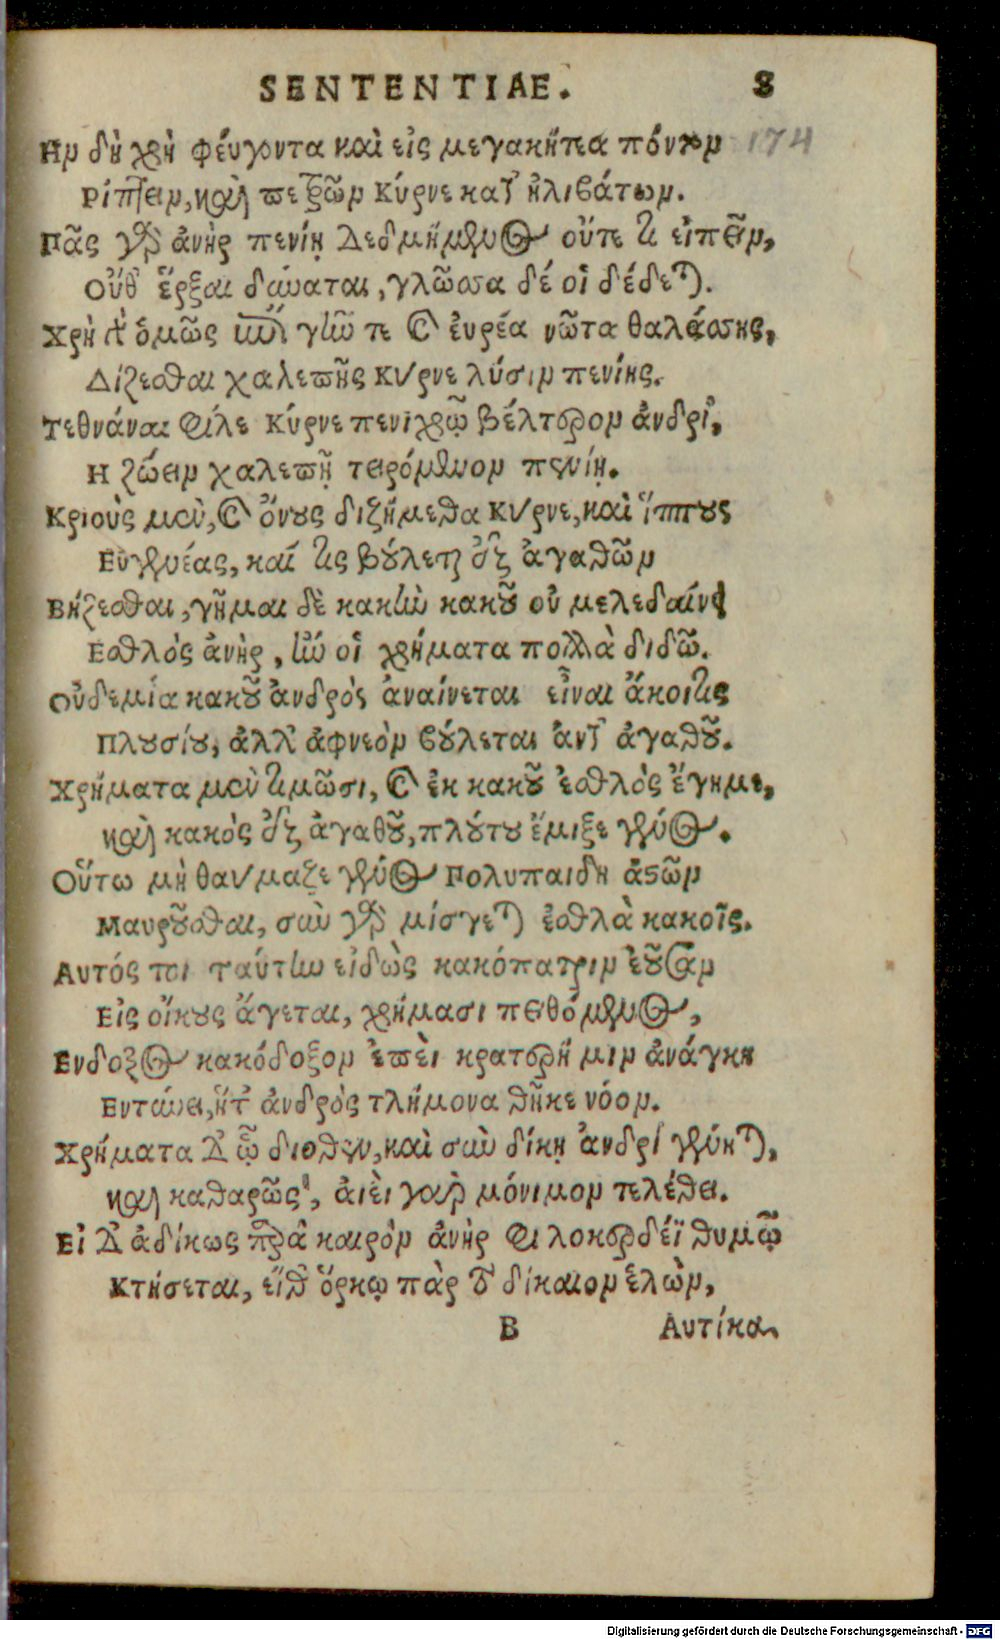 SENTENTIAE. 8
Ην δὴ χρὴ φεύγοντα καὶ εἰς μεγακήτεα πόντον 174
Ρίπτειν, καὶ πετρῶν Κύρνε κατ' ἠλιβάτων.
Πᾶς γὰρ ἀνὴρ πενίῃ δεδμήμενος οὔτε τι εἰπεῖν,
Οὔθ' ἕρξαι δύναται, γλῶσσα δέ οἱ δέδεται.
Χρὴ δ' ὁμῶς ἐπὶ γῆν τε καὶ εὐρέα νῶτα θαλάσσης,
Δίζεσθαι χαλεπῆς Κύρνε λύσιν πενίης.
Τεθνάναι φίλε Κύρνε πενιχρῷ βέλτερον ἀνδρὶ,
Η ζώειν χαλεπῇ τειρόμενον πενίῃ.
Κριοὺς μὲν, καὶ ὄνους διζήμεθα Κύρνε, καὶ ἵππους
Εὐγενέας, καί τις βούλεται ἐξ ἀγαθῶν
Βήζεσθαι, γῆμαι δὲ κακὴν κακοῦ οὐ μελεδαίνει
Εσθλὸς ἀνὴρ, ἤν οἱ χρήματα πολλὰ διδῶ.
Οὐδεμία κακοῦ ἀνδρὸς ἀναίνεται εἶναι ἄκοιτις
Πλουσίου, ἀλλ' ἀφνεὸν βούλεται ἀντ' ἀγαθοῦ.
Χρήματα μὲν τιμῶσι, καὶ ἐκ κακοῦ ἐσθλὸς ἔγημε,
καὶ κακὸς ἐξ ἀγαθοῦ, πλούτου ἔμιξε γένος.
Οὕτω μὴ θαύμαζε γένος Πολυπαιδη ἀστῶν
Μαυροῦσθαι, σὺν γὰρ μίσγεται ἐσθλὰ κακοῖς.
Αυτός τοι ταύτην εἰδὼς κακόπατριν ἐοῦσαν
Εἰς οἴκους ἄγεται, χρήμασι πειθόμενος,
Ενδοξος κακόδοξον ἐπεὶ κρατερή μιν ἀνάγκη
Εντύνει, ἥτ' ἀνδρὸς τλήμονα θῆκε νόον.
Χρήματα δ' ᾧ διοθεν, καὶ σὺν δίκῃ ἀνδρὶ γένηται,
καὶ καθαρῶς, ἀιὲι γὰρ μόνιμον τελέθει.
Εἰ δ' ἀδίκως παρὰ καιρὸν ἀνὴρ φιλοκερδέϊ θυμῷ
Κτήσεται, εἴθ' ὅρκῳ πὰρ τὸ δίκαιον ἑλὼν,
B Αυτίκα
Digitalisierung gefördert durch die Deutsche Forschungsgemeinschaft - DFG